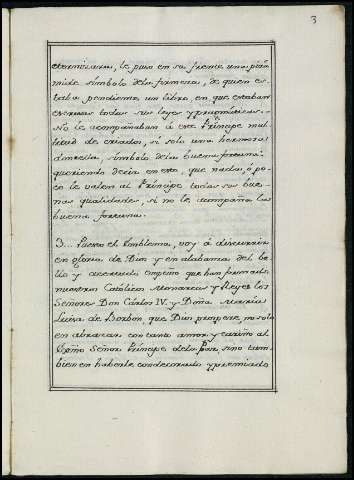 3
eternizara, le puso en su frente una pira
mide símbolo de la firmeza, de quien es-
taba pendiente un libro en que estaban
escritas todas sus leyes y pragmáticas.
No le acompañaban á este Príncipe mul
titud de criados, si solo una hermosa
doncella, símbolo de la buena fortuna:
queriendo decir en esto, que nada, ó po-
co le valen al Príncipe todas sus bue-
nas qualidades, si no le acompaña la
buena fortuna.
3... Puesto el Emblema, voy á discurrir
en gloria de Dios y en alabanza del be
llo y acertado empeño que han formado
nuestros Católicos Monarcas y Reyes los
Señores Don Cárlos IV. y Doña María
Luisa de Borbón, que Dios prospere, no solo
en abrazar con tanto amor y cariño al
Señor Príncipe de la Paz, sino tam
bien en haberle condecorado y premiado